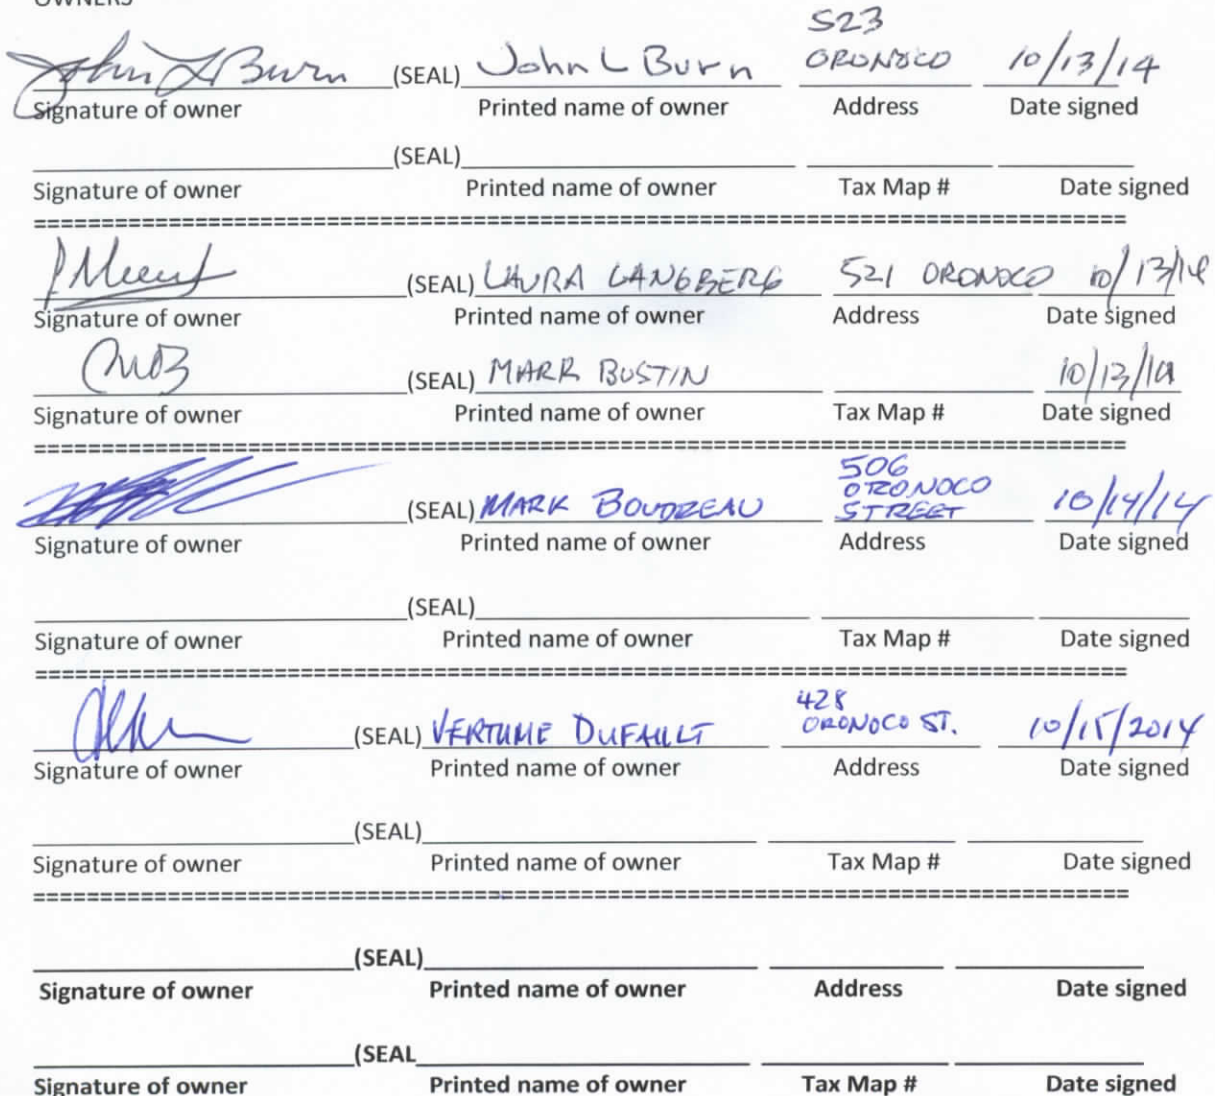 OWNERS
John L Burn (SEAL) John L Burn 523 ORONOCO 10/13/14
Signature of owner Printed name of owner Address Date signed
(SEAL)
Signature of owner Printed name of owner Tax Map # Date signed
(SEAL) LAURA LANGBERG 521 ORONOCO 10/13/14
Signature of owner Printed name of owner Address Date signed
(SEAL) MARK BUSTIN 10/13/14
Signature of owner Printed name of owner Tax Map # Date signed
(SEAL) MARK BOUDREAU 506 ORONOCO STREET 10/14/14
Signature of owner Printed name of owner Address Date signed
(SEAL)
Signature of owner Printed name of owner Tax Map # Date signed
(SEAL) DUFAULT 428 ORONOCO ST. 10/15/2014
Signature of owner Printed name of owner Address Date signed
(SEAL)
Signature of owner Printed name of owner Tax Map # Date signed
(SEAL)
Signature of owner Printed name of owner Address Date signed
(SEAL
Signature of owner Printed name of owner Tax Map # Date signed